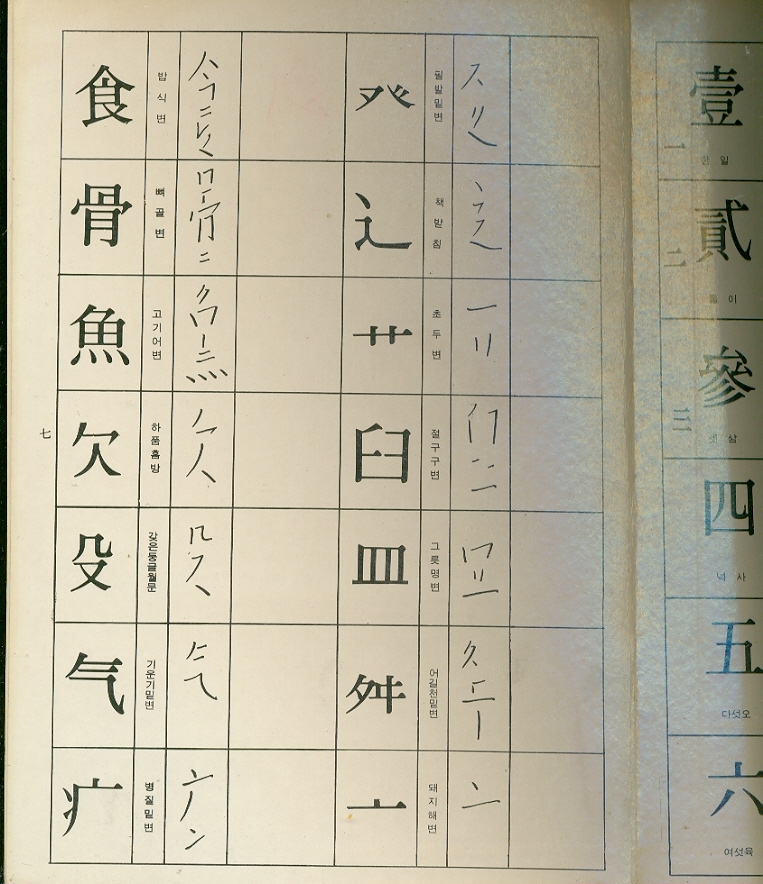 食 밥식변
骨 뼈골변
魚 고기어변
欠 하품흠방
殳 갖은둥글월문
气 기운기밑변
疒 병질밑변
癶 필발밑변
辶 책받침
艹 초두변
臼 절구구변
皿 그릇명변
舛 어길천밑변
亠 돼지해변
七
壹 一 한일
貳 二 둘이
參 三 셋삼
四 넉사
五 다섯오
六 여섯육